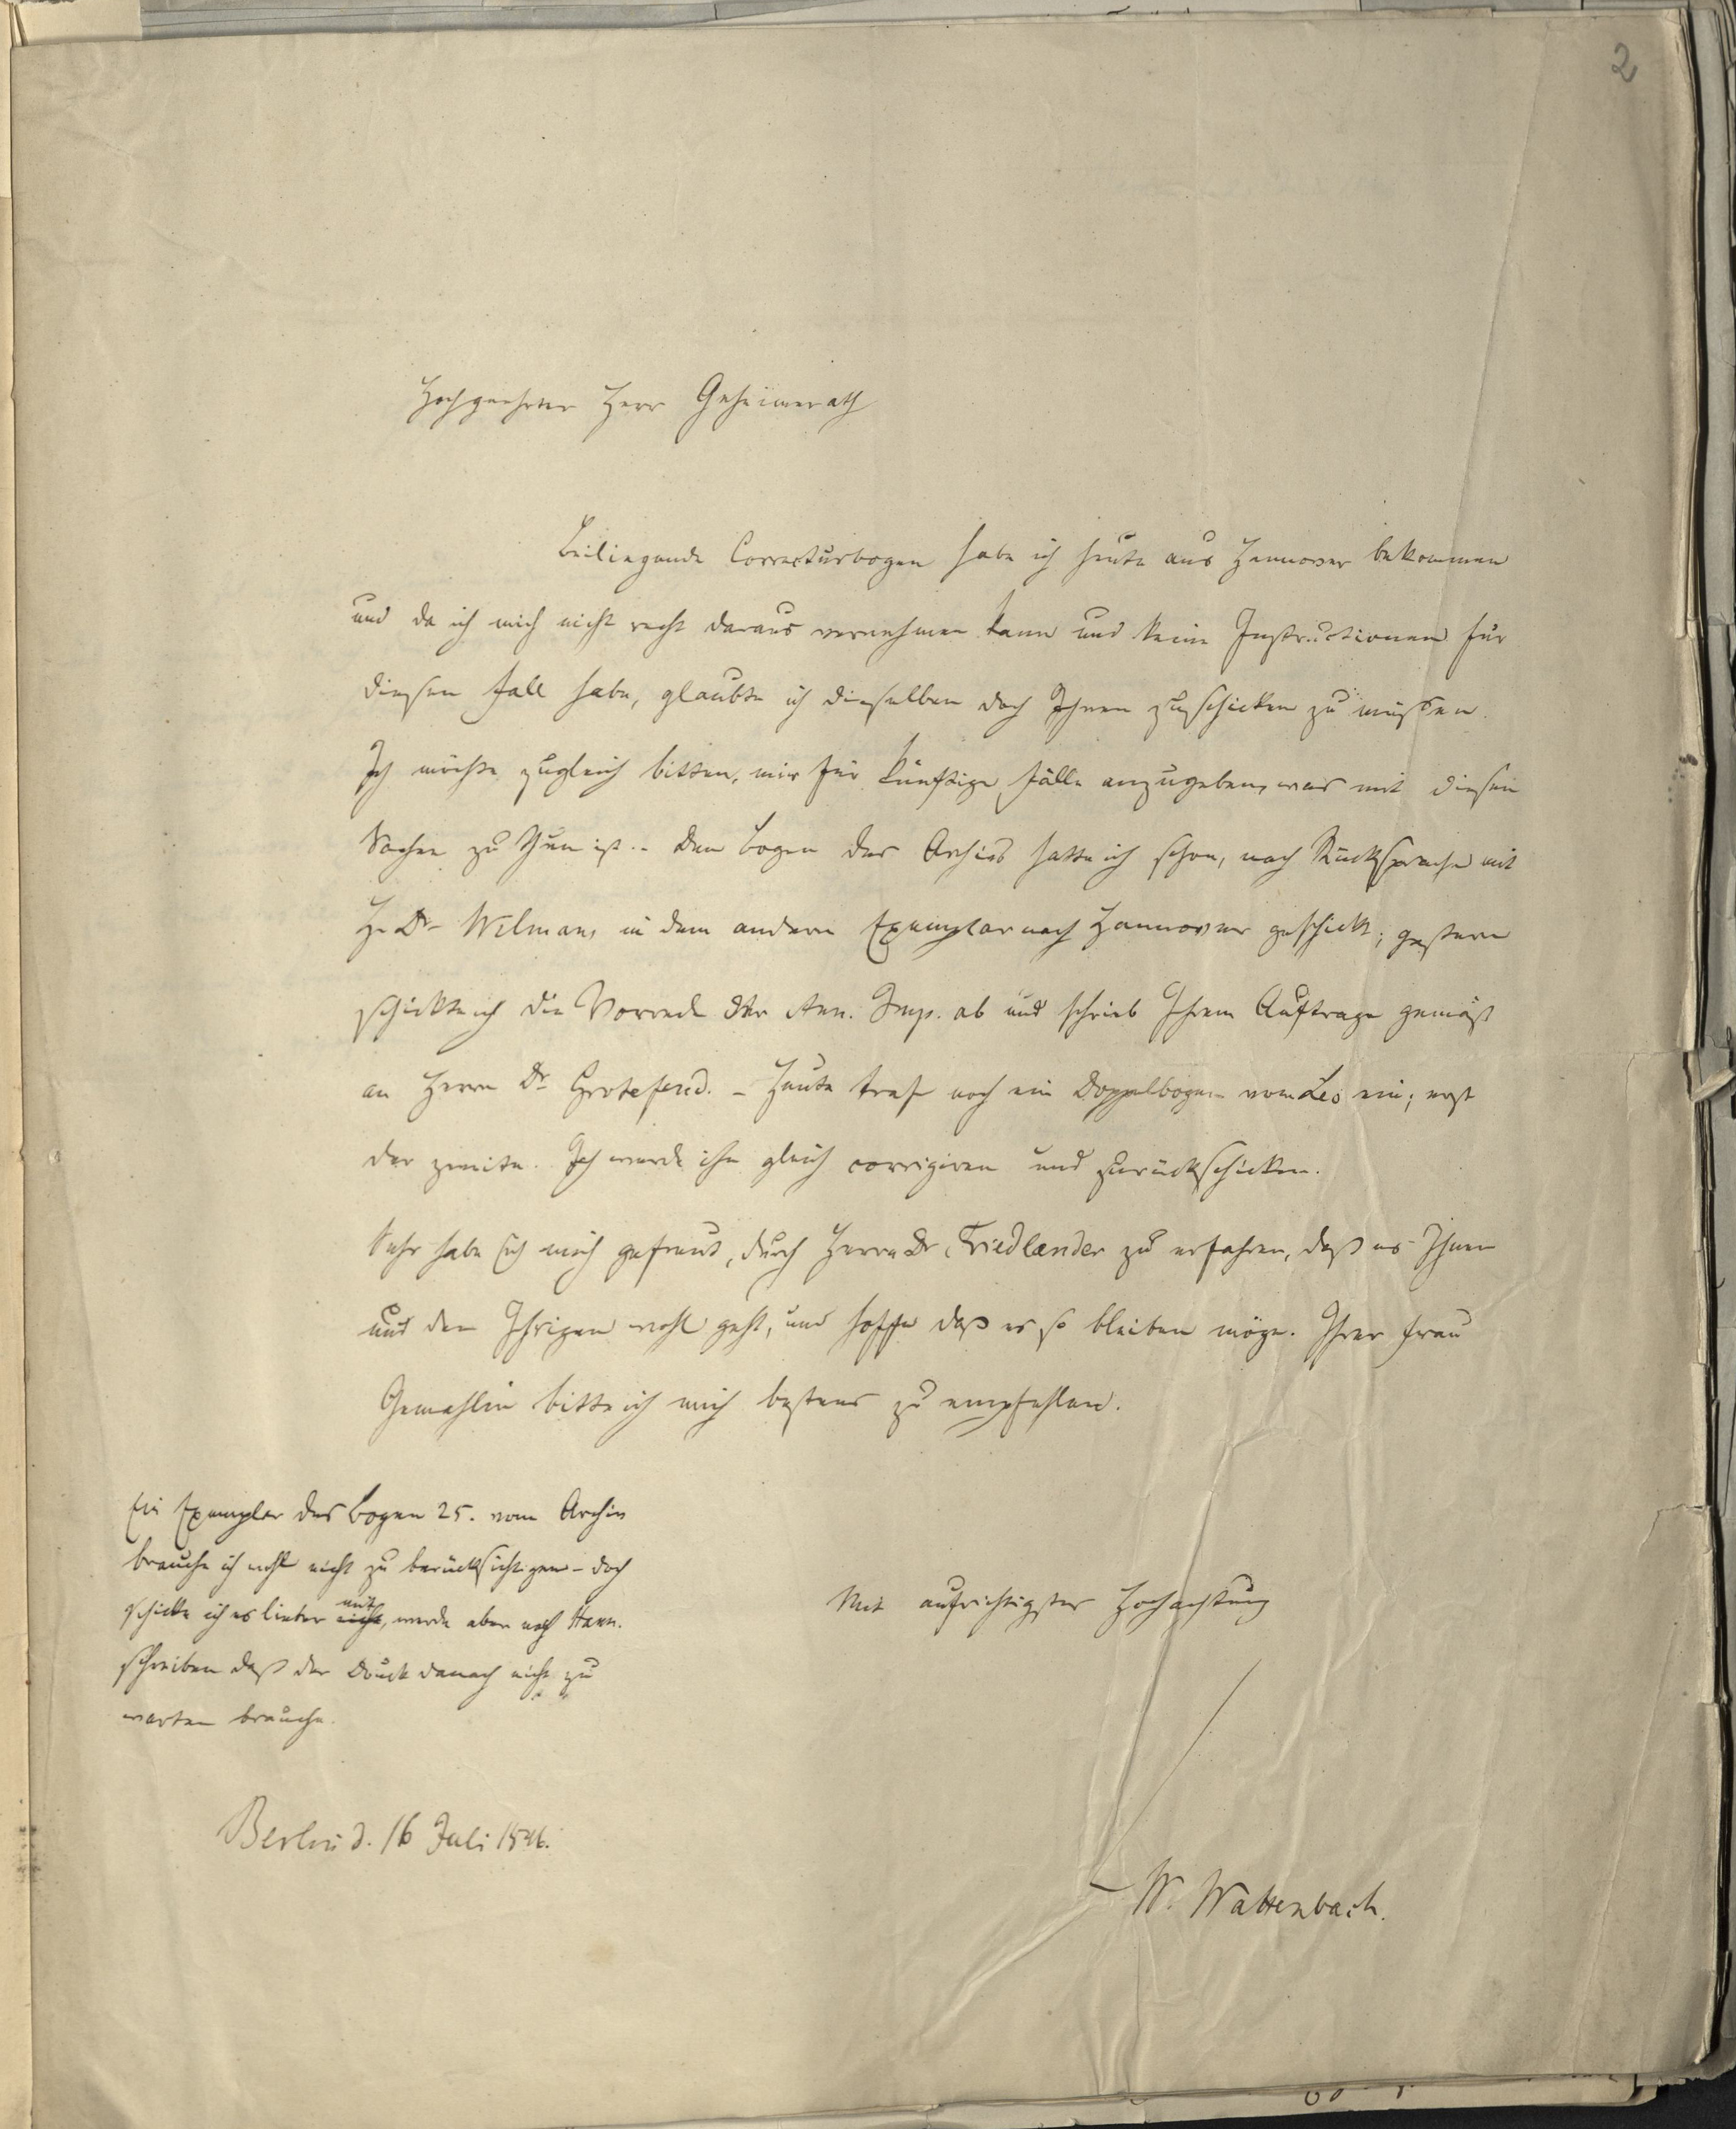 2
Hochgeehrter Herr Geheimerath
Beiliegende Correcturbogen habe ich heute aus Hannover bekommen
und da ich mich nicht recht daraus vernehmen kann und keine Instructionen für
diesen Fall habe, glaubte ich dieselben doch Ihnen zuschicken zu müssen.
Ich möchte zugleich bitten, mir für künftige Fälle anzugeben, was mit diesen
Sachen zu thun ist. - Den Bogen des Archivs hatte ich schon, nach Rücksprache mit
H. Dr Wilmans in dem andern Exemplar nach Hannover geschickt; gestern
schickte ich die Vorrede der Ann. Imp. ab und schrieb Ihrem Auftrage gemäß
an Herrn Dr Grotefend. - Heute traf noch ein Doppelbogen vom Leo ein; erst
der zweite. Ich werde ihn gleich corrigiren und zurückschicken.
Sehr habe ich mich gefreut, durch Herrn Dr Friedlænder zu erfahren, daß es Ihnen
und den Ihrigen wohl geht, und hoffe daß es so bleiben möge. Ihrer Frau
Gemahlin bitte ich mich bestens zu empfehlen.
Ein Exemplar des Bogen 25. vom Archiv
brauche ich wohl nicht zu berücksichtigen - doch
schicke ich es lieber nicht mit, werde aber nach Hann.
schreiben daß der Druck danach nicht zu
warten brauche.
Mit aufrichtigster Hochachtung
Berlin d. 16 Juli 1846.
W. Wattenbach.